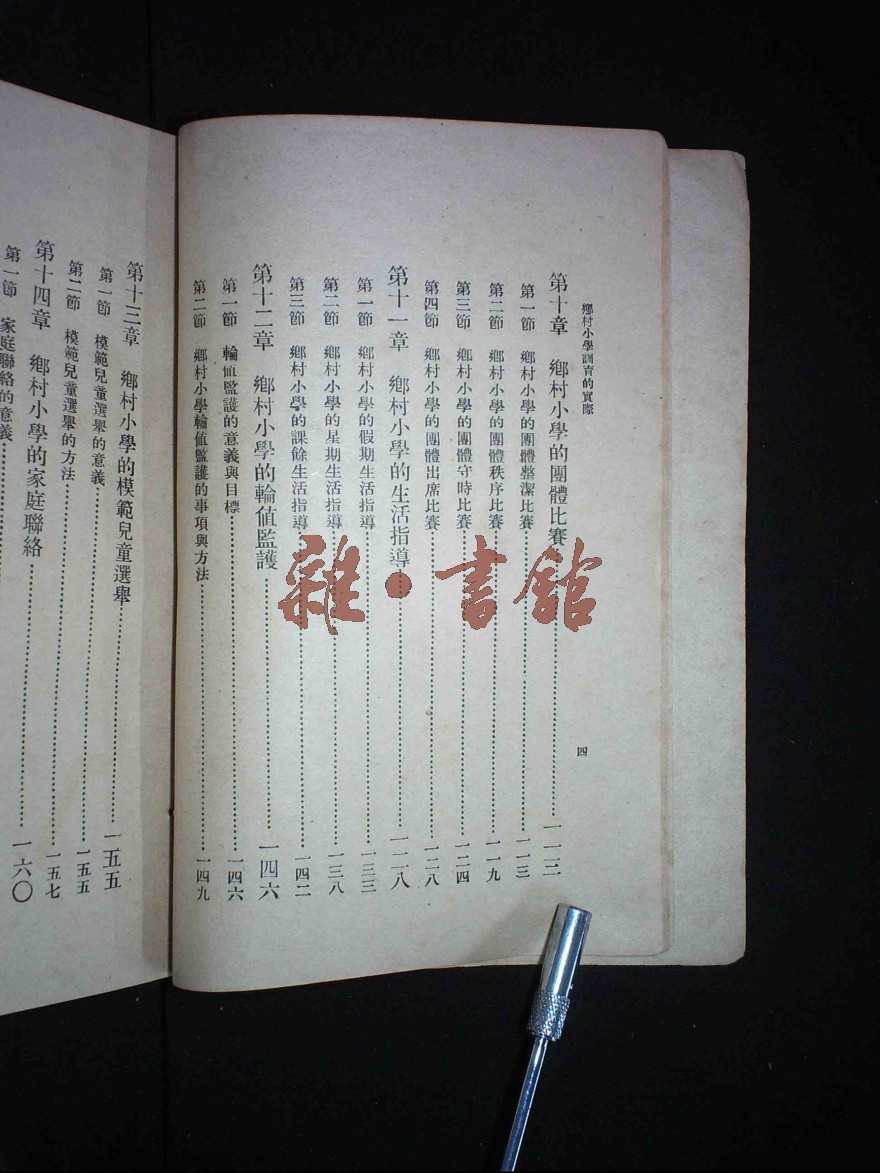 鄉村小學訓育的實際
四
第十章　鄉村小學的團體比賽…………一一三
第一節　鄉村小學的團體整潔比賽…………一一三
第二節　鄉村小學的團體秩序比賽…………一一九
第三節　鄉村小學的團體守時比賽…………一二四
第四節　鄉村小學的團體出席比賽…………一二八
第十一章　鄉村小學的生活指導…………一二八
第一節　鄉村小學的假期生活指導…………一三三
第二節　鄉村小學的星期生活指導…………一三八
第三節　鄉村小學的課餘生活指導…………一四二
第十二章　鄉村小學的輪值監護…………一四六
第一節　輪值監護的意義與目標…………一四六
第二節　鄉村小學輪值監護的事項與方法…………一四九
第十三章　鄉村小學的模範兒童選舉…………一五五
第一節　模範兒童選舉的意義…………一五五
第二節　模範兒童選舉的方法…………一五七
第十四章　鄉村小學的家庭聯絡…………一六〇
第一節　家庭聯絡的意義…………
雜·書館